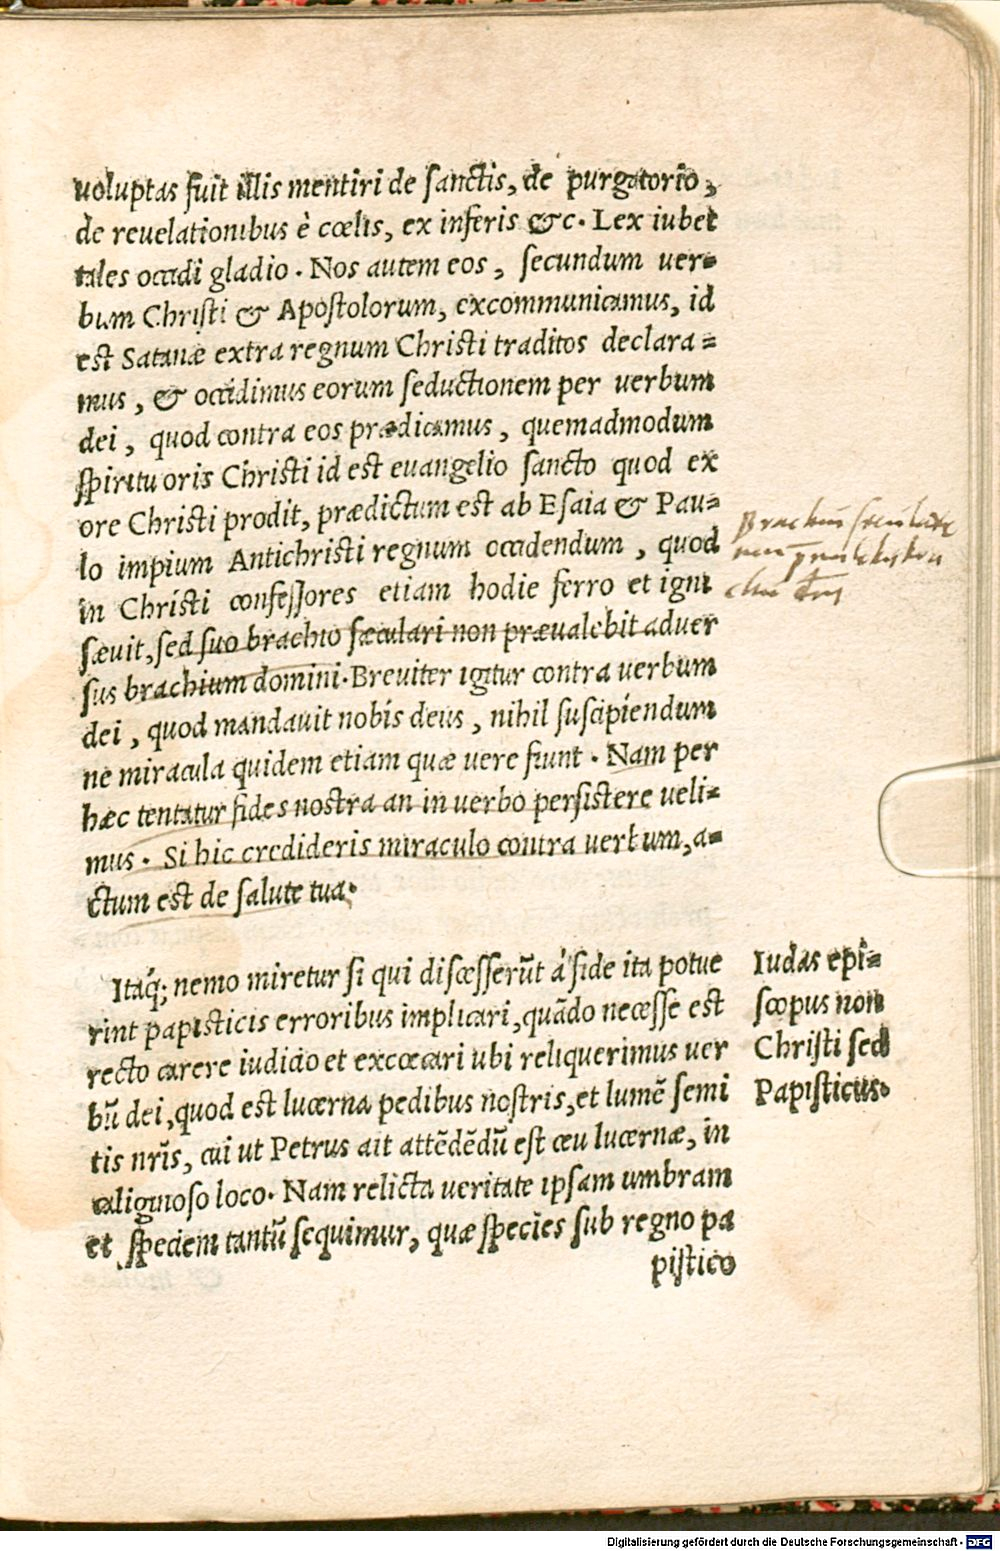 voluptas fuit illis mentiri de ſanctis, de purgatorio,
de reuelationibus è cœlis, ex inferis &c. Lex iubet
tales occidi gladio. Nos autem eos, ſecundum ver=
bum Chriſti & Apoſtolorum, excommunicamus, id
eſt Satanæ extra regnum Chriſti traditos declara=
mus, & occidimus eorum ſeductionem per verbum
dei, quod contra eos prædicamus, quemadmodum
ſpiritu oris Chriſti id eſt euangelio ſancto quod ex
ore Chriſti prodit, prædictum eſt ab Eſaia & Pau=
lo impium Antichriſti regnum occidendum, quod
in Chriſti confeſſores etiam hodie ferro et igni
ſæuit, ſed ſuo brachio ſæculari non præualebit aduer
ſus brachium domini. Breuiter igitur contra uerbum
dei, quod mandauit nobis deus, nihil ſuſcipiendum
ne miracula quidem etiam quæ uere fiunt. Nam per
hæc tentatur fides noſtra an in uerbo perſiſtere ueli=
mus. Si hic credideris miraculo contra uerbum, a=
ctum eſt de ſalute tua.
Itaq́; nemo miretur ſi qui diſceſſerūt à fide ita potue
rint papiſticis erroribus implicari, quādo neceſſe eſt
recto carere iudicio et excœcari ubi reliquerimus uer
bū dei, quod eſt lucerna pedibus noſtris, et lumē ſemi
tis nr̃is, cui ut Petrus ait attēdēdū eſt ceu lucernæ, in
caliginoſo loco. Nam relicta ueritate ipſam umbram
et ſpeciem tantū ſequimur, quæ ſpecies ſub regno pa
piſtico
Brachiũ
Iudas epi=
ſcopus non
Chriſti ſed
Papiſticus.
Digitalisierung gefördert durch die Deutsche Forschungsgemeinschaft - DFG